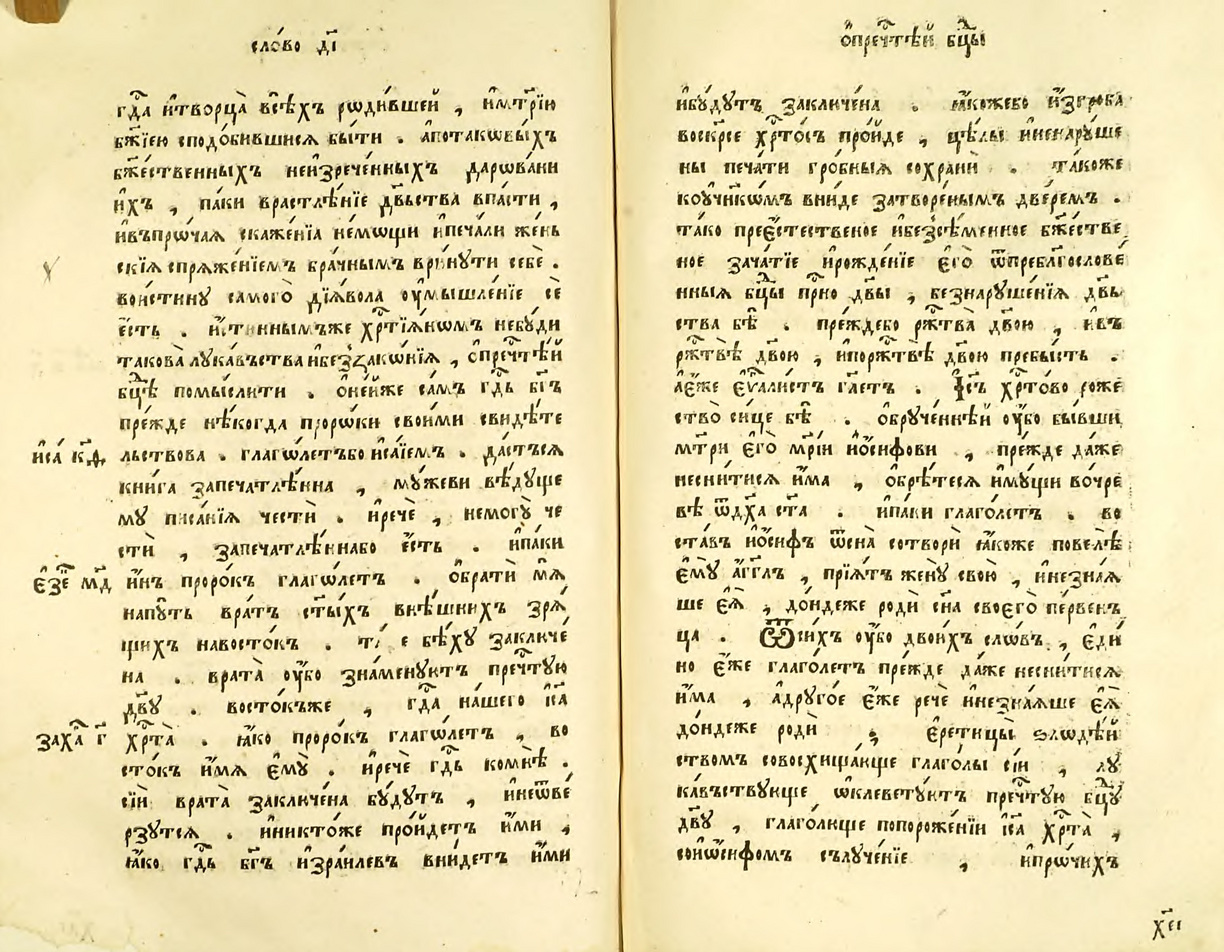 сло́во д҃і
гд҇а и҆творца̀ всѣ́хъ рѡди́вшей , и҆мт҃рїю
бж҃їею сподо́бившися бы́ти . а҆потакѡвы́хъ
бж҃ественныхъ неи҆зрече́нныхъ дарѡва́ни
и҆хъ , па́ки врастлѣ́нїе дв҃ьства впа́сти ,
и҆въпрѡ́чая скаже́нїа не́мощи и҆печа́ли же́нь
скїѧ спряже́нїемъ бра́чнымъ врѝнути себѐ .
вои҆́стину самого̀ дїѧ́вола оу҆мышле́нїе сѐ
є҆́сть . и҆́стиннымъже хрт҇їѧ́нѡмъ небу́ди
такова̀ лука́въства и҆безꙁако́нїѧ , ѡ҆пречт҇ѣ́й
бц҃ѣ помы́слити . ѡ҆не́йже са́мъ гд҇ь бг҃ъ
пре́жде нѣ́когда прⷪ҇рѡ́ки свои́ми свидѣ́те
и҆са́ к҃ѳ льствова . глаго́летъбо и҆са́їемъ . да́стъся
кни́га запечатлѣ́нна , му́жеви вѣ́дуще
му писа́нїѧ че́сти . и҆речѐ , немогу̀ че
стѝ , запечатлѣ́ннабо є҆́сть . и҆па́ки
є҆зе҇ м҃д и҆́нъ проро́къ глаго́летъ . ѡ҆брати́ мѧ
напу́ть вра́тъ ст҃ы́хъ внѣ́шнихъ зрѧ́
щихъ навосто́къ . бѣ́ху заключе́
на . врата̀ оу҆́бо зна́менуютъ пречт҇ую
дв҃у . восто́къже , гд҇а на́шего і҆са
заха́ г҃ хрт҇а̀ . ꙗ҆́ко проро́къ глаго́летъ , во
сто́къ и҆́мѧ є҆му̀ . и҆речѐ гд҇ь комнѣ̀ .
сїѝ врата̀ заключе́на бу́дутъ , и҆неѿве́
рзутся . и҆никто́же про́йдетъ и҆́ми ,
ꙗ҆́ко гд҇ь бг҃ъ и҆зра́илевъ вни́детъ и҆́ми
ѡ҆пречт҇ѣ́й бц҃ы
и҆бу́дутъ заключе́на . ꙗ҆́коже́бо и҆з̾гро́ба
воскр҃се хрт҇о́съ про́йде , цѣ́лы и҆ненару́ше
ны печа́ти гро́бныѧ сохранѝ . та́коже
коу҆чникѡ́мъ вни́де затворе́нымъ две́ремъ .
та́ко прее҆сте́ственое и҆безсѣ́менное бж҃естве
ное зача́тїе и҆рожде́нїе є҆гѡ̀ ѿпребл҃гослове́
нныѧ бц҃ы прⷭ҇но дв҃ы , безнаруше́нїѧ дв҃ь
ства бѣ̀ . пре́ждебо рж҇тва̀ дв҃ою , и҆въ
рж҇твѣ̀ дв҃ою , и҆порж҇твѣ̀ дв҃ою пребы́сть .
а҆е́же є҆ѵ҃али́стъ гл҃етъ . І҆с҃ъ хрт҇о́во ро́же
ство̀ си́це бѣ̀ . ѡ҆бруче́ннѣй оу҆́бо бы́вши
мт҃ри є҆гѡ̀ мр҃іи і҆ѡ́сифови , пре́жде да́же
несни́тися и҆́ма , ѡ҆брѣ́теся и҆му́щи вочре́
вѣ ѿдх҃а ст҃а . и҆па́ки глаго́летъ . во
ста́въ і҆ѡ́сифъ ѿсна̀ сотворѝ ꙗ҆́коже повелѣ̀
є҆му̀ а҆́гг҃лъ , прїѧ́тъ жену̀ свою̀ , и҆незна́ѧ
ше є҆ѧ̀ , до́ндеже родѝ сн҃а своего̀ пе́рвенъ
ца . Ѿси́хъ оу҆́бо двои́хъ сло́въ , є҆ди́
но є҆́же глаго́летъ пре́жде да́же несни́тися
и҆́ма , а҆друго́е є҆́же речѐ и҆незна́ѧше є҆ѧ̀
до́ндеже родѝ , є҆рети́цы ѕлѡдѣ́й
ствомъ совосхища́юще глаго́лы сїѝ , лу
ка́въствующе ѡ҆клевету́ютъ пречт҇ую бц҃у
дв҃у , глаго́люще попороже́нїи і҆са хрт҇а̀ ,
сои҆ѡ́сифомъ сълуче́нїе , и҆прѡ́чихъ